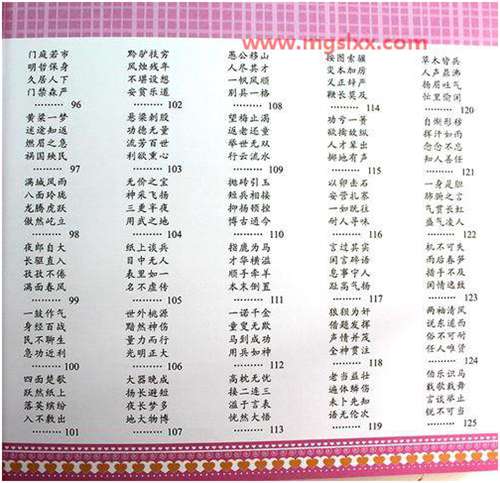 www.mgslxx.com
门庭若市
明哲保身
久居人下
门禁森严
96
黄粱一梦
迷途知返
燃眉之急
祸国殃民
97
满城风雨
八面玲珑
龙腾虎跃
傲然屹立
98
夜郎自大
长驱直入
孜孜不倦
满面春风
99
一鼓作气
身经百战
民不聊生
急功近利
100
四面楚歌
跃然纸上
落英缤纷
入不敷出
101
黔驴技穷
风烛残年
不堪设想
安贫乐道
102
悬梁刺股
功德无量
流芳百世
利欲熏心
103
无价之宝
神采飞扬
三更半夜
用武之地
104
纸上谈兵
目中无人
表里如一
名不虚传
105
世外桃源
黯然神伤
量力而行
光明正大
106
大器晚成
扬长避短
夜长梦多
地大物博
107
愚公移山
人尽其才
一帆风顺
别具一格
108
望梅止渴
返老还童
举世无双
行云流水
109
抛砖引玉
短兵相接
抑扬顿挫
博古通今
110
指鹿为马
才华横溢
顺手牵羊
本末倒置
111
一诺千金
童叟无欺
马到成功
用兵如神
112
高枕无忧
接二连三
溢于言表
恍然大悟
113
按图索骥
变本加厉
义正辞严
鞭长莫及
114
功亏一篑
欲擒故纵
人才辈出
掷地有声
115
以卵击石
安营扎寨
一如既往
耐人寻味
116
言过其实
闲言碎语
息事宁人
趾高气扬
117
狼狈为奸
借题发挥
声情并茂
全神贯注
118
老当益壮
遍体鳞伤
未卜先知
语无伦次
119
草木皆兵
人声鼎沸
扬眉吐气
忙里偷闲
120
自惭形秽
挥汗如雨
念念不忘
知人善任
121
一身是胆
肺腑之言
气贯长虹
盛气凌人
122
机不可失
雨后春笋
措手不及
闲情逸致
123
两袖清风
说东道西
俗不可耐
任人唯贤
124
伯乐识马
载歌载舞
言谈举止
锐不可当
125